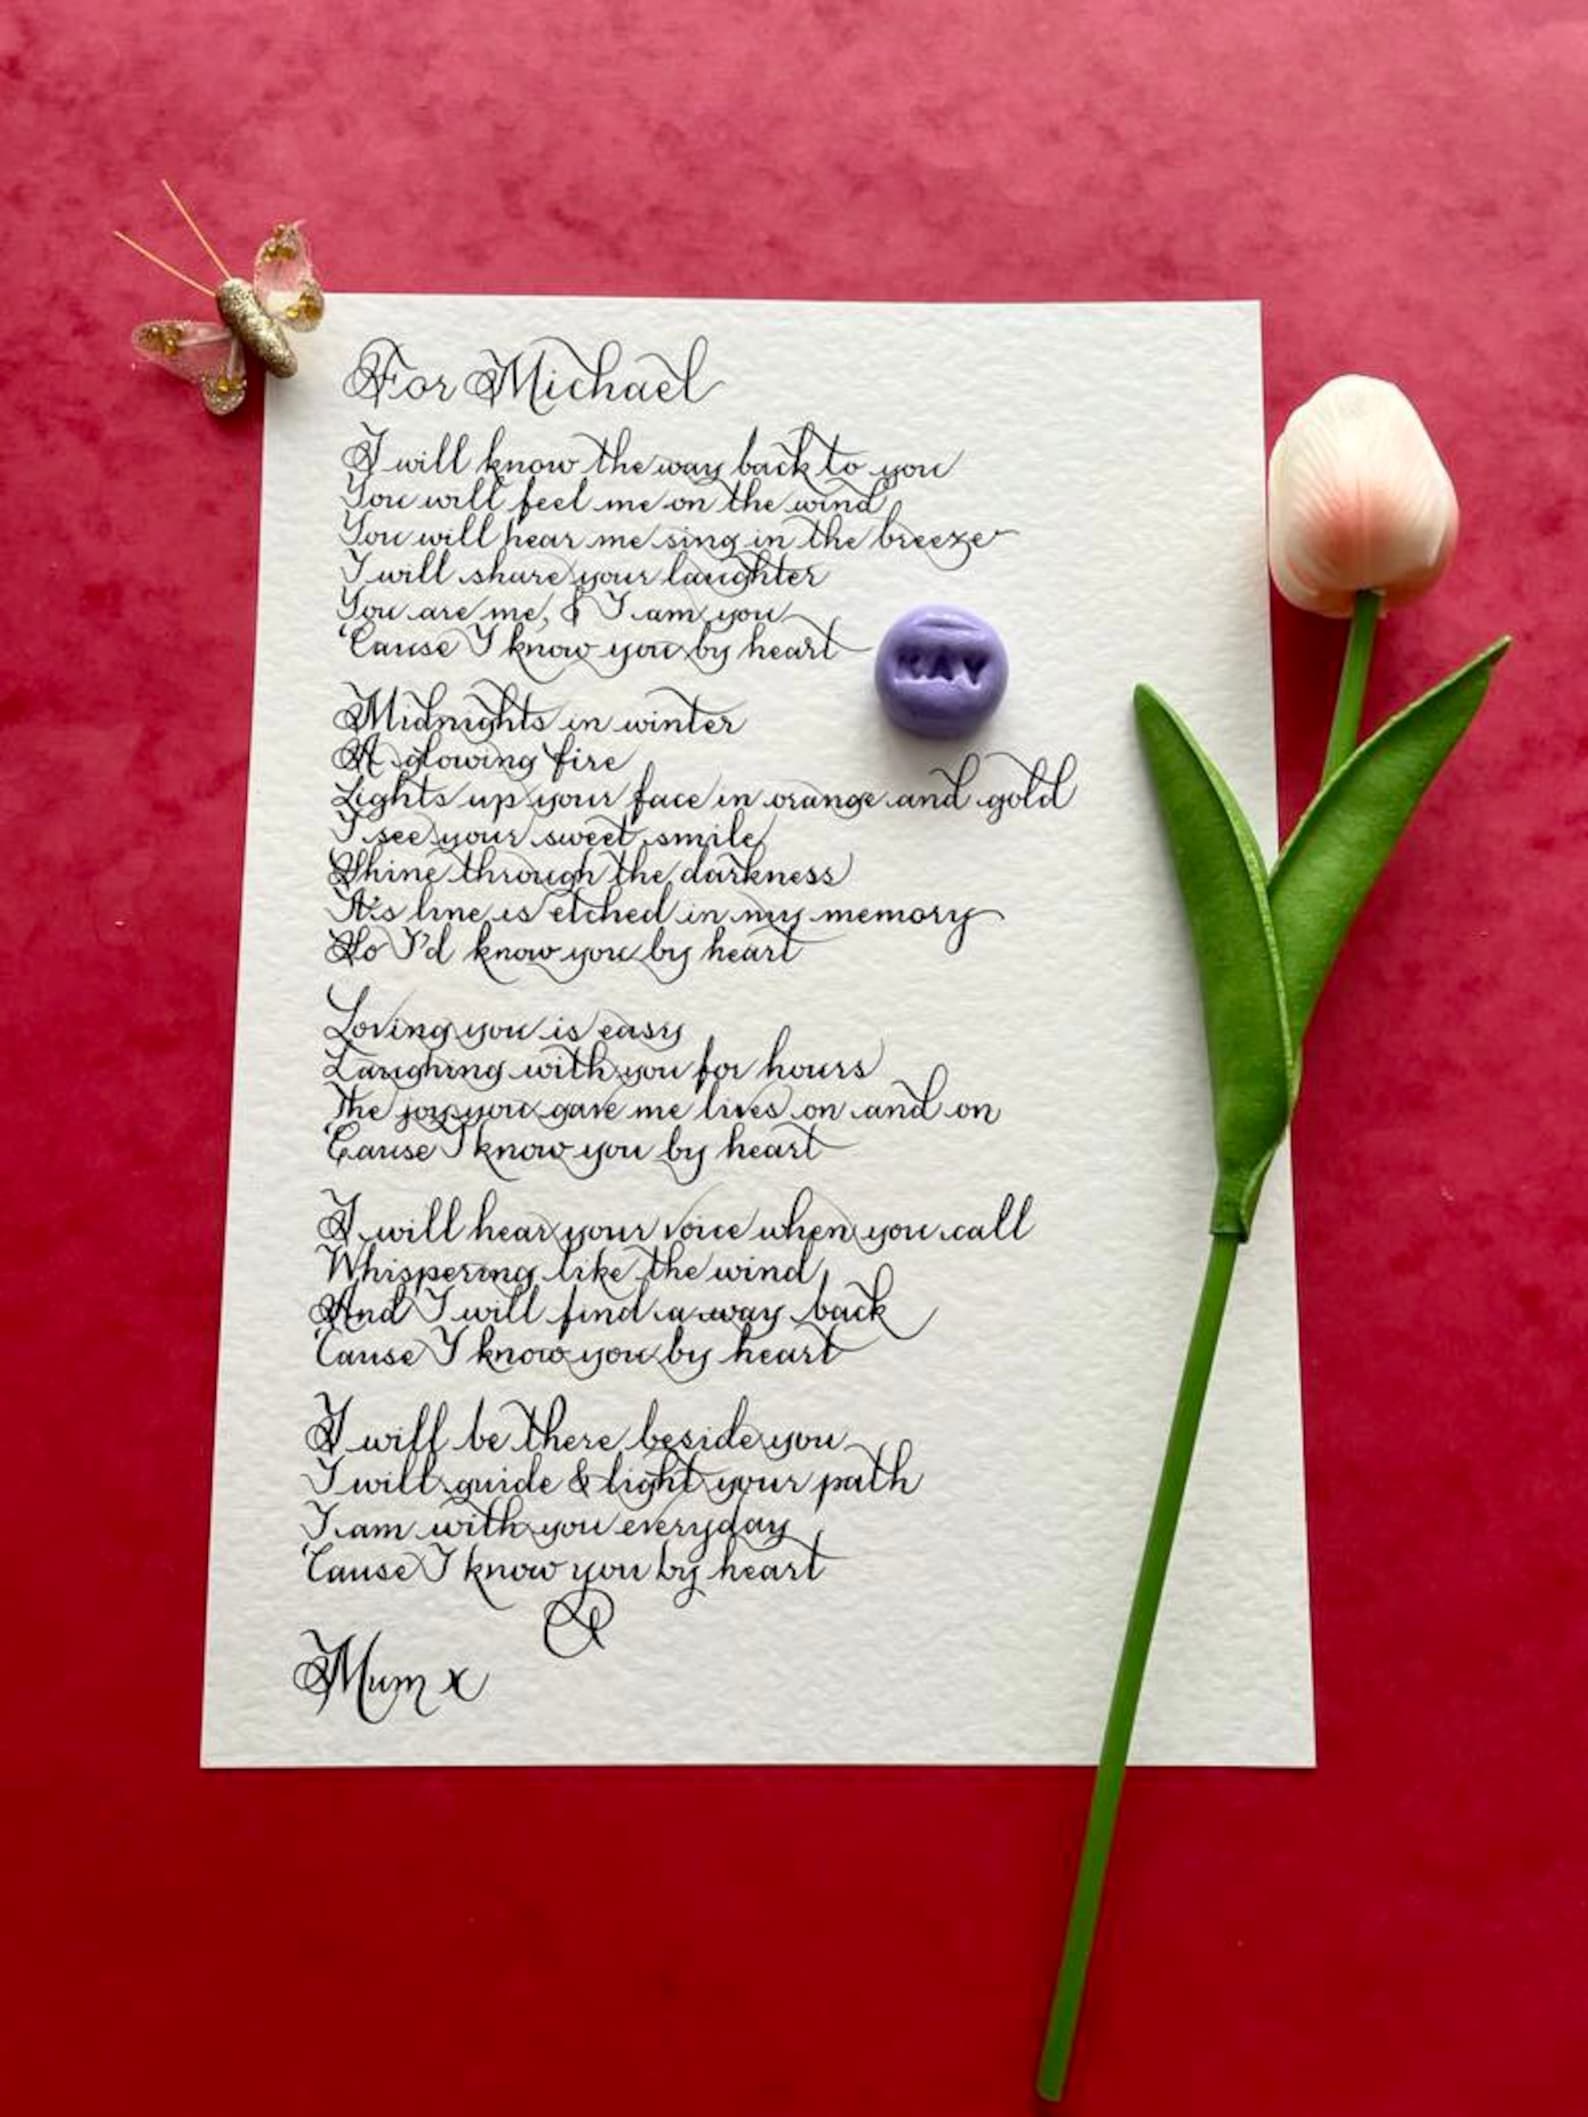 For Michael
I will know the way back to you
You will feel me on the wind
You will hear me sing in the breeze
I will share your laughter
You are me, & I am you
'Cause I know you by heart
KAY
Midnights in winter
A glowing fire
Lights up your face in orange and gold
I see your sweet smile
Shine through the darkness
It's line is etched in my memory
So I'd know you by heart
Loving you is easy
Laughing with you for hours
The joy you gave me lives on and on
'Cause I know you by heart
I will hear your voice when you call
Whispering like the wind
And I will find a way back
'Cause I know you by heart
I will be there beside you
I will guide & light your path
I am with you everyday
'Cause I know you by heart
Mum x